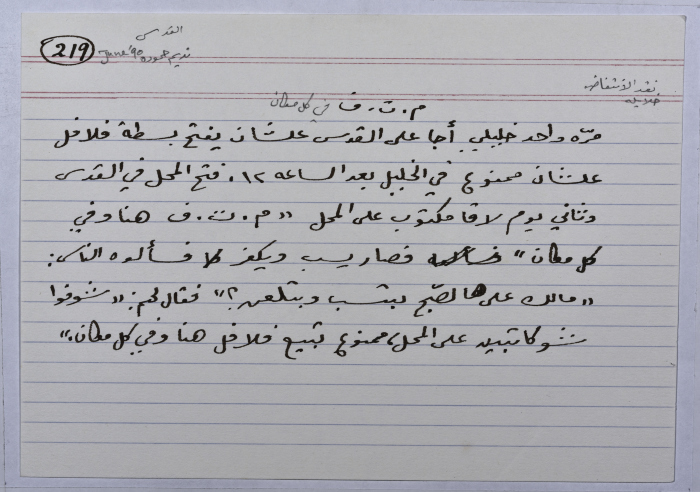 القدس
219
نديم حموده June '90
نقد الانتفاضة
خلايله
م.ت.ف في كل مكان
مرّه واحد خليلي أجا على القدس علشان يفتح بسطة فلافل
علشان ممنوع في الخليل بعد الساعه ١٢. فتح المحل في القدس
وثاني يوم لاقا مكتوب على المحل "م.ت.ف هنا وفي
كل مكان" فصار يسب ويكفر فسألوه الناس:
"مالك على هالصبح بتسب وبتلعن؟" فقال لهم: "شوفوا
شو كاتبين على المحل، ممنوع تبيع فلافل هنا وفي كل مكان."